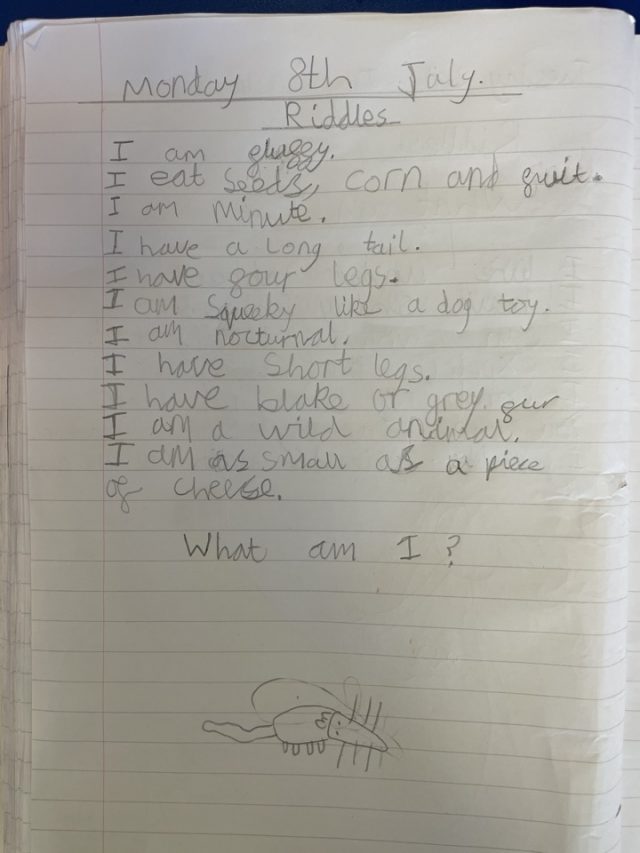 Monday 8th July.
Riddles
I am fluffy.
I eat seeds, corn and fruit.
I am minute.
I have a long tail.
I have four legs.
I am squeeky like a dog toy.
I am nocturnal.
I have short legs.
I have blake or grey fur
I am a wild animal.
I am as small as a piece
of cheese.
What am I?